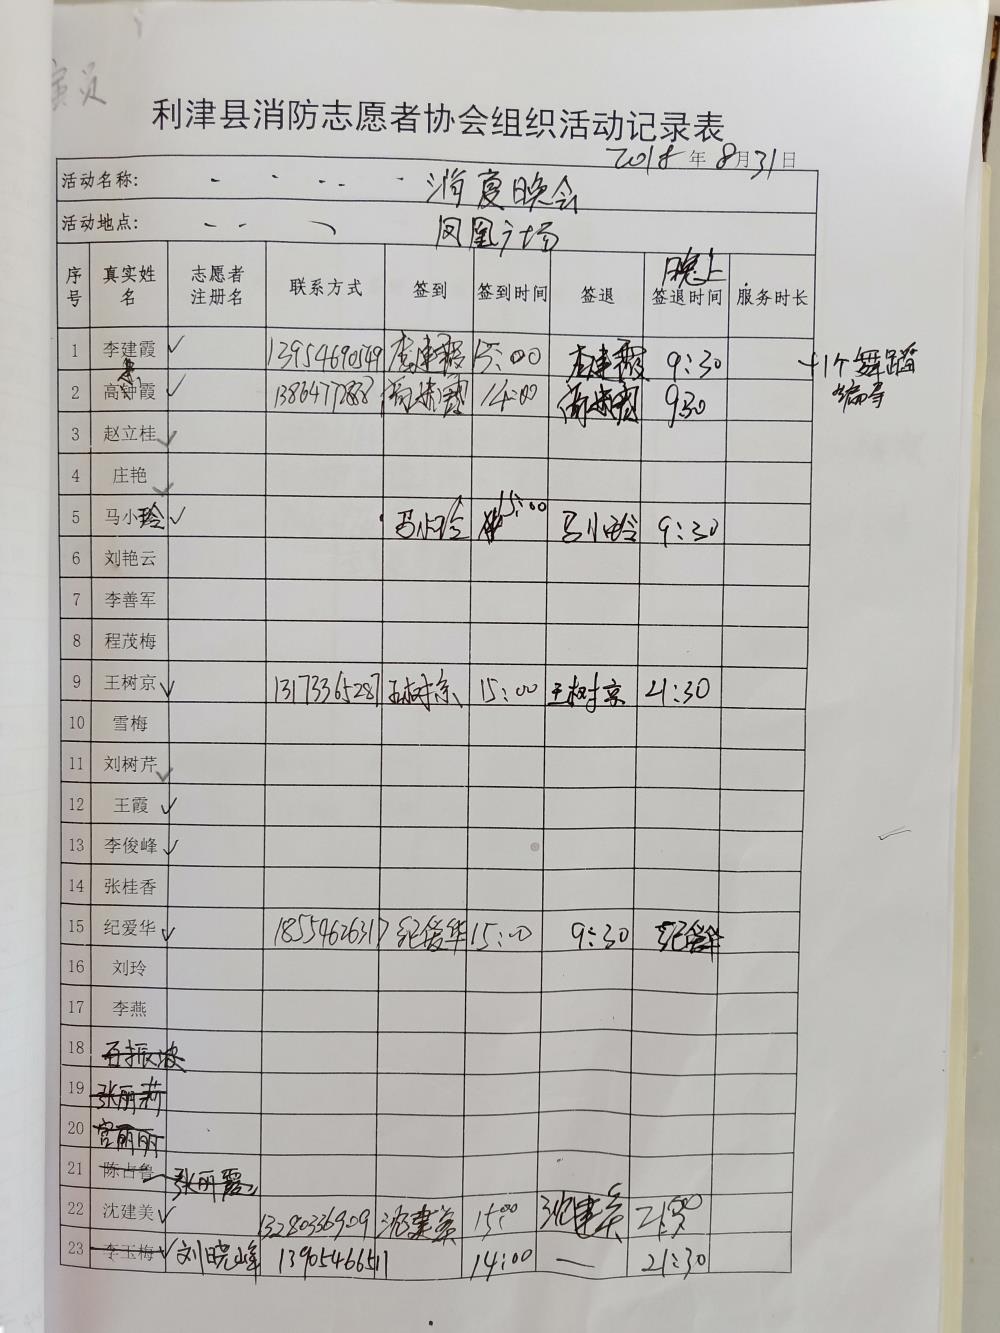 演员
利津县消防志愿者协会组织活动记录表
2018年8月31日
活动名称: 消夏晚会
活动地点: 凤凰广场
晚上
序号 真实姓名 志愿者注册名 联系方式 签到 签到时间 签退 签退时间 服务时长
1 李建霞 ✓ 13954690549 李建霞 15:00 李建霞 9:30
+1个舞蹈
编导
2 高钟霞 ✓ 14:00 930
3 赵立桂 ✓
4 庄艳 ✓
5 马小玲 ✓ 马小玲 15:00 马小玲 9:30
6 刘艳云
7 李善军
8 程茂梅
9 王树京 ✓ 13173365287 王树京 15:00 王树京 21:30
10 雪梅
11 刘树芹 ✓
12 王霞 ✓
13 李俊峰 ✓
14 张桂香
15 纪爱华 ✓ 18554626317 纪爱华 15:00 9:30 纪爱华
16 刘玲
17 李燕
18 石振波
19 张丽莉
20 宫丽丽
21 陈占鲁 张丽霞
22 沈建美 ✓ 13280336909 沈建美 15:00 沈建美
23 李玉梅 ✓ 刘晓峰 13905466511 14:00 — 21:30